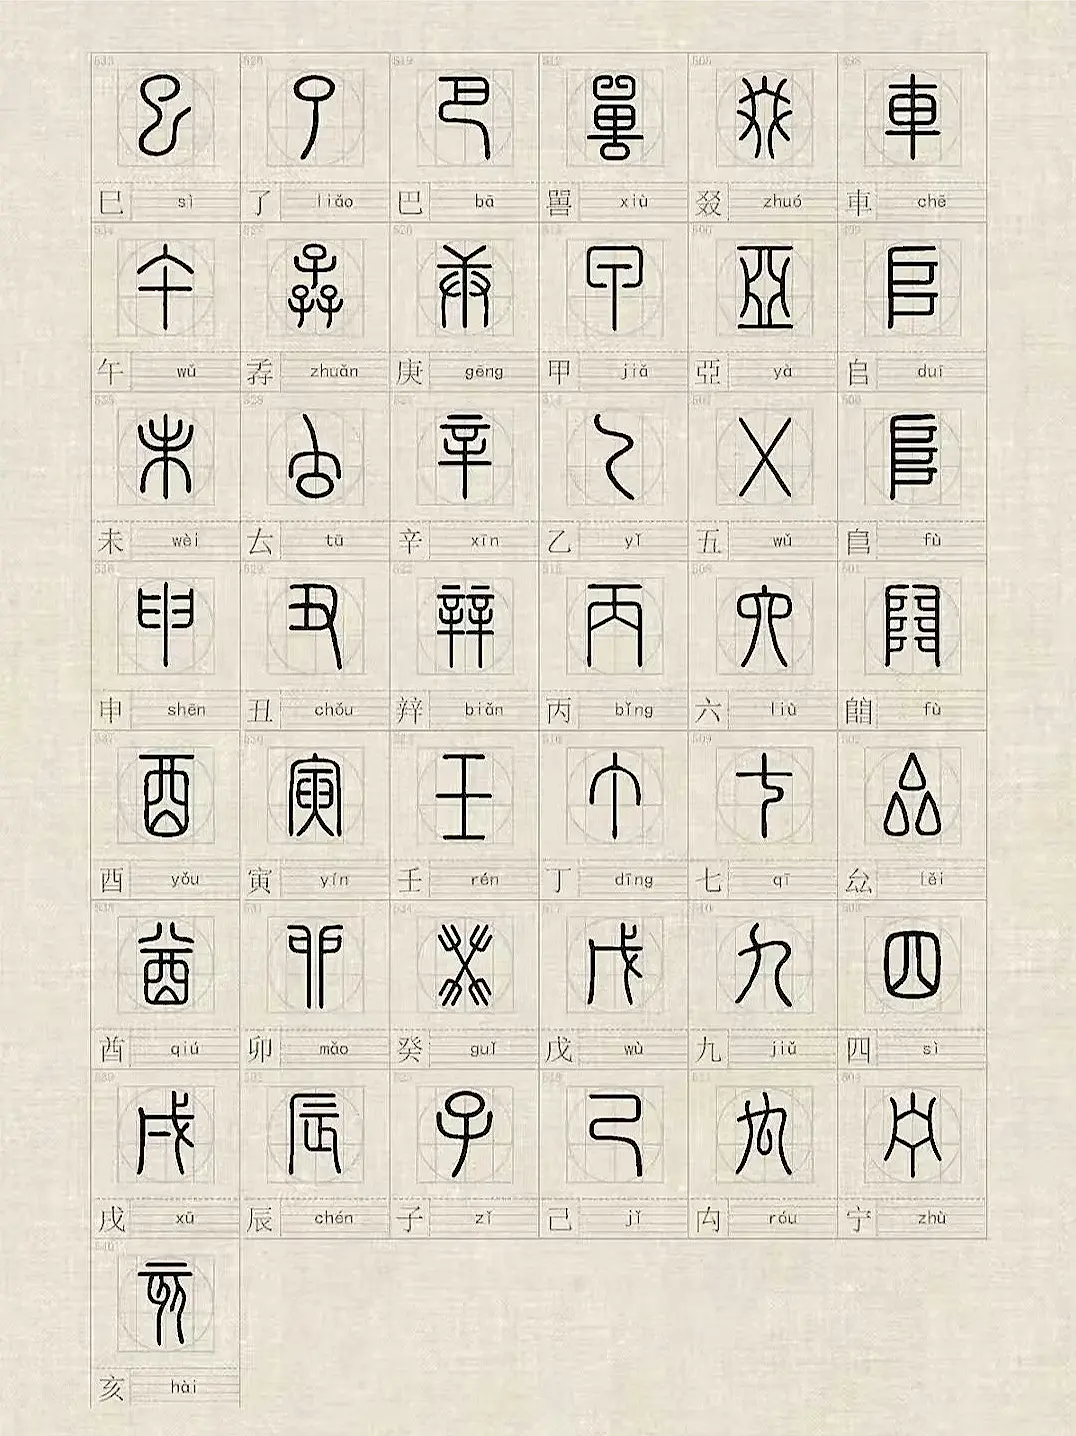 車 chē
𠂤 duī
𨸏 fù
𨺅 fù
厽 lěi
四 sì
宁 zhù
叕 zhuó
亞 yà
五 wǔ
六 liù
七 qī
九 jiǔ
禸 róu
嘼 xiù
甲 jiǎ
乙 yǐ
丙 bǐng
丁 dīng
戊 wù
己 jǐ
巴 bā
庚 gēng
辛 xīn
辡 biǎn
壬 rén
癸 guǐ
子 zǐ
了 liǎo
孨 zhuǎn
𠫓 tū
丑 chǒu
寅 yín
卯 mǎo
辰 chén
巳 sì
午 wǔ
未 wèi
申 shēn
酉 yǒu
酋 qiú
戌 xū
亥 hài